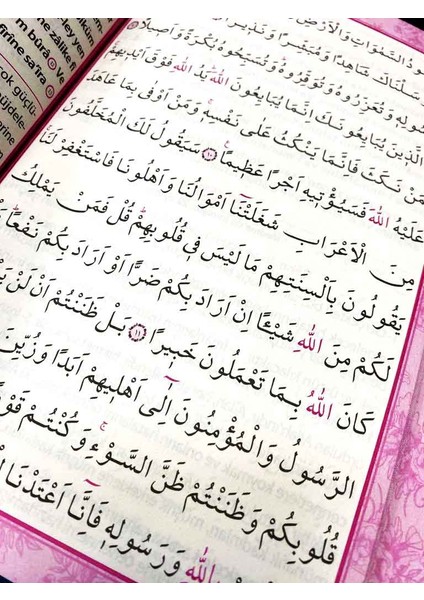 ودُ السَّمٰوَاتِ وَالْاَرْضِ
سَلْنَاكَ شَاهِدًا وَمُبَشِّرًا وَنَذٖيرًا
سُولِهٖ وَتُعَزِّرُوهُ وَتُوَقِّرُوهُ وَتُسَبِّحُوهُ بُكْرَةً وَاَصٖيلًا
الَّذٖينَ يُبَايِعُونَكَ اِنَّمَا يُبَايِعُونَ اللّٰهَ يَدُ اللّٰهِ فَوْقَ اَيْدٖيهِمْ
مَنْ نَكَثَ فَاِنَّمَا يَنْكُثُ عَلٰى نَفْسِهٖ وَمَنْ اَوْفٰى بِمَا عَاهَدَ
عَلَيْهُ اللّٰهَ فَسَيُؤْتٖيهِ اَجْرًا عَظٖيمًا ١٠ سَيَقُولُ لَكَ الْمُخَلَّفُونَ
مِنَ الْاَعْرَابِ شَغَلَتْنَا اَمْوَالُنَا وَاَهْلُونَا فَاسْتَغْفِرْ لَنَا
يَقُولُونَ بِاَلْسِنَتِهِمْ مَا لَيْسَ فٖى قُلُوبِهِمْ قُلْ فَمَنْ يَمْلِكُ
لَكُمْ مِنَ اللّٰهِ شَيْـًٔا اِنْ اَرَادَ بِكُمْ ضَرًّا اَوْ اَرَادَ بِكُمْ نَفْعًا
كَانَ اللّٰهُ بِمَا تَعْمَلُونَ خَبٖيرًا ١١ بَلْ ظَنَنْتُمْ اَنْ لَنْ
الرَّسُولُ وَالْمُؤْمِنُونَ اِلٰٓى اَهْلٖيهِمْ اَبَدًا وَزُيِّنَ
قُلُوبِكُمْ وَظَنَنْتُمْ ظَنَّ السَّوْءِ وَكُنْتُمْ
بِاللّٰهِ وَرَسُولِهٖ فَاِنَّٓا اَعْتَدْنَا
ley yen
ne zâlike fî
m bûrâ Ve
firîne saîra
ok güçlü-